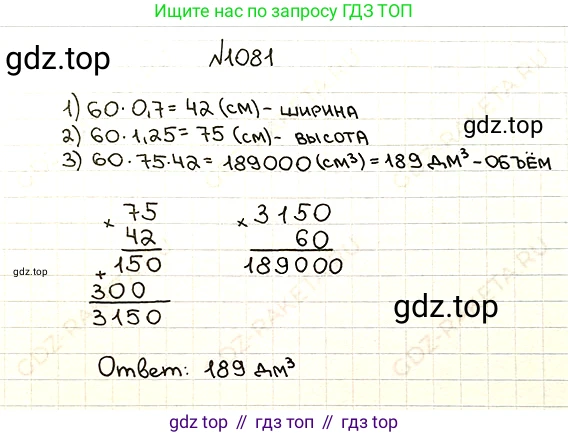 Ищите нас по запросу ГДЗ ТОП
gdz.top
№1081
1) 60 · 0,7 = 42 (см) - ширина
2) 60 · 1,25 = 75 (см) - высота
3) 60 · 75 · 42 = 189000 (см³) = 189 дм³ - объём
gdz.top
× 75
42
+ 150
300
3150
× 3150
60
189000
gdz.top
gdz.top
Ответ: 189 дм³
GDZ-RAKETA.RU
gdz.top // гдз топ // гдз.топ